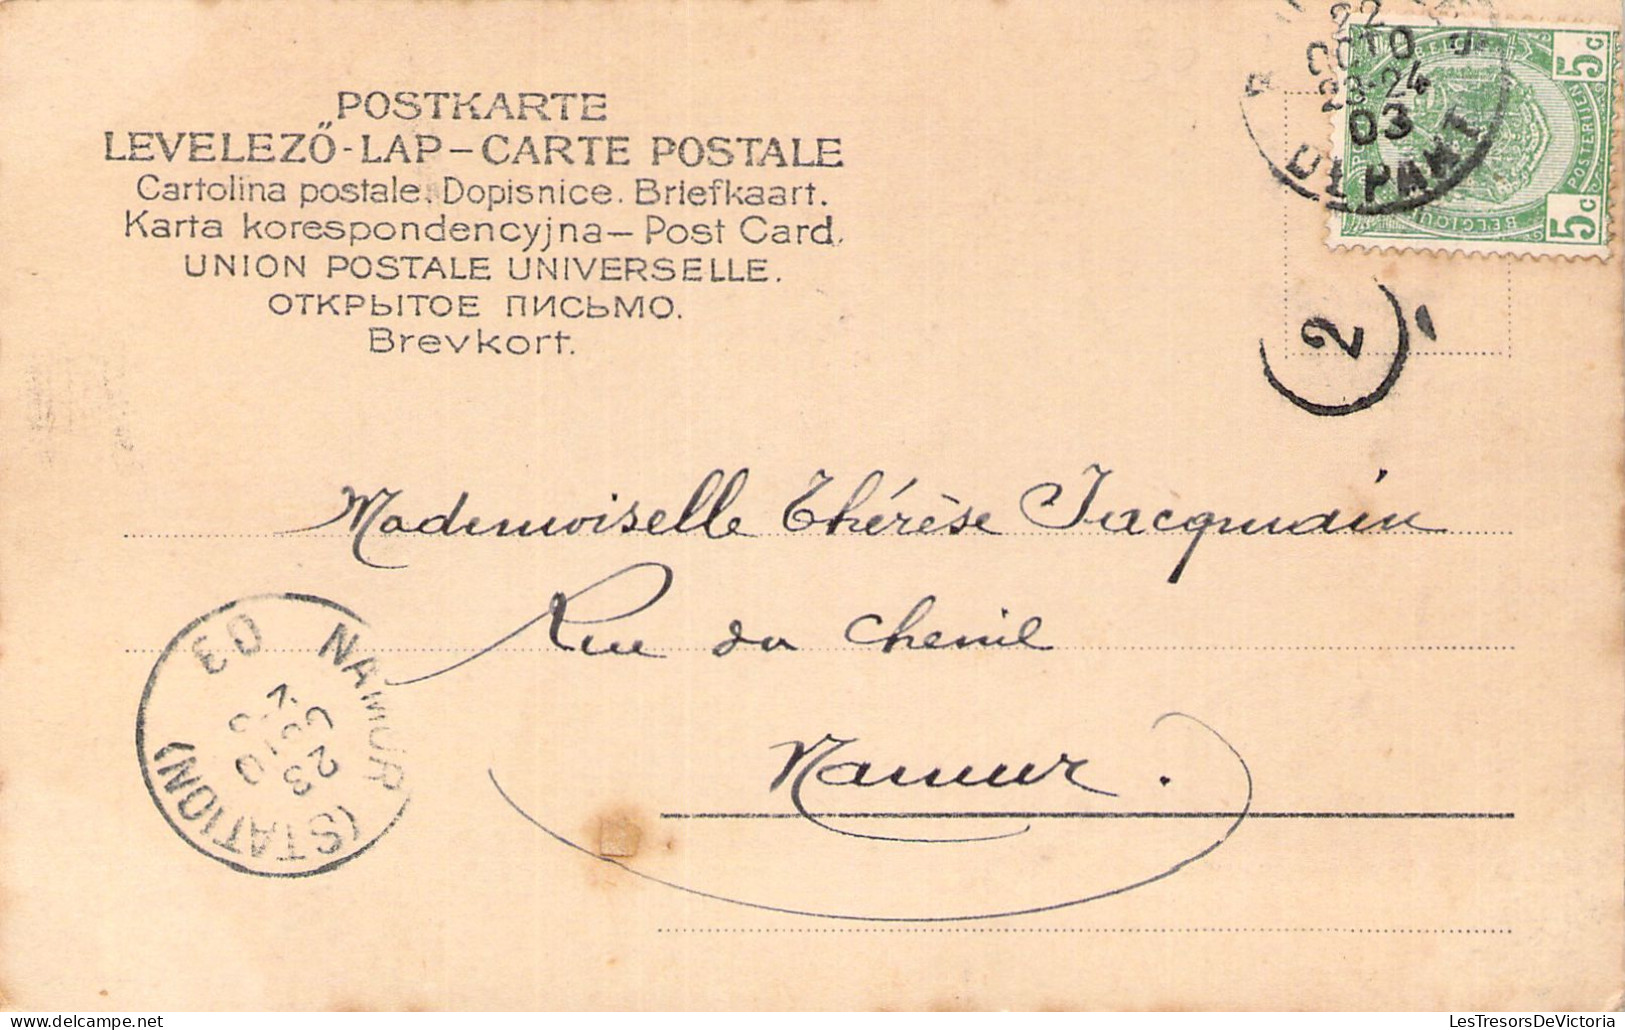 POSTKARTE
LEVELEZŐ-LAP-CARTE POSTALE
Cartolina postale. Dopisnice. Briefkaart.
Karta korespondencyjna- Post Card.
UNION POSTALE UNIVERSELLE.
ОТКРЫТОЕ ПИСЬМО.
Brevkort.
22
OCTO
23-24
03
DÉPART
5c
BELGIQUE
POSTERIJEN
5c
2
Mademoiselle Thérèse Jacqmain
Rue du Chenil
Namur.
NAMUR (STATION)
03
LesTresorsDeVictoria